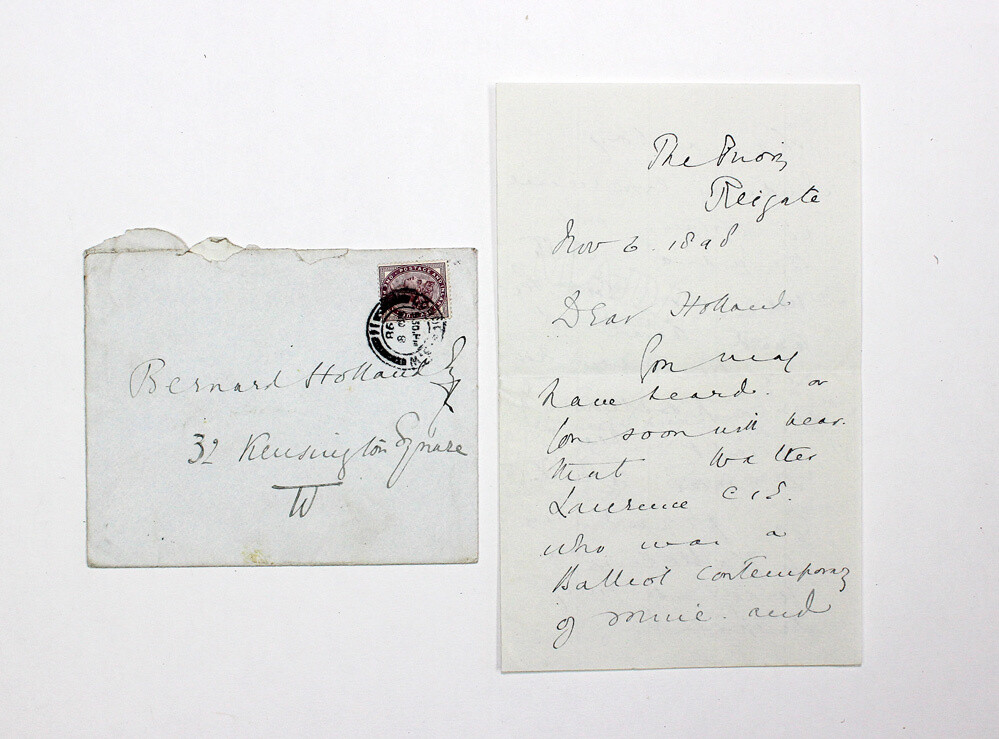 Bernard Holland Esq
32 Kensington Square
W
POSTAGE AND
The Priory
Reigate
Nov 6. 1898
Dear Holland
You may
have heard. or
you soon will hear.
that Walter
Lawrence CIS.
who was a
Balliol contemporary
of mine. and